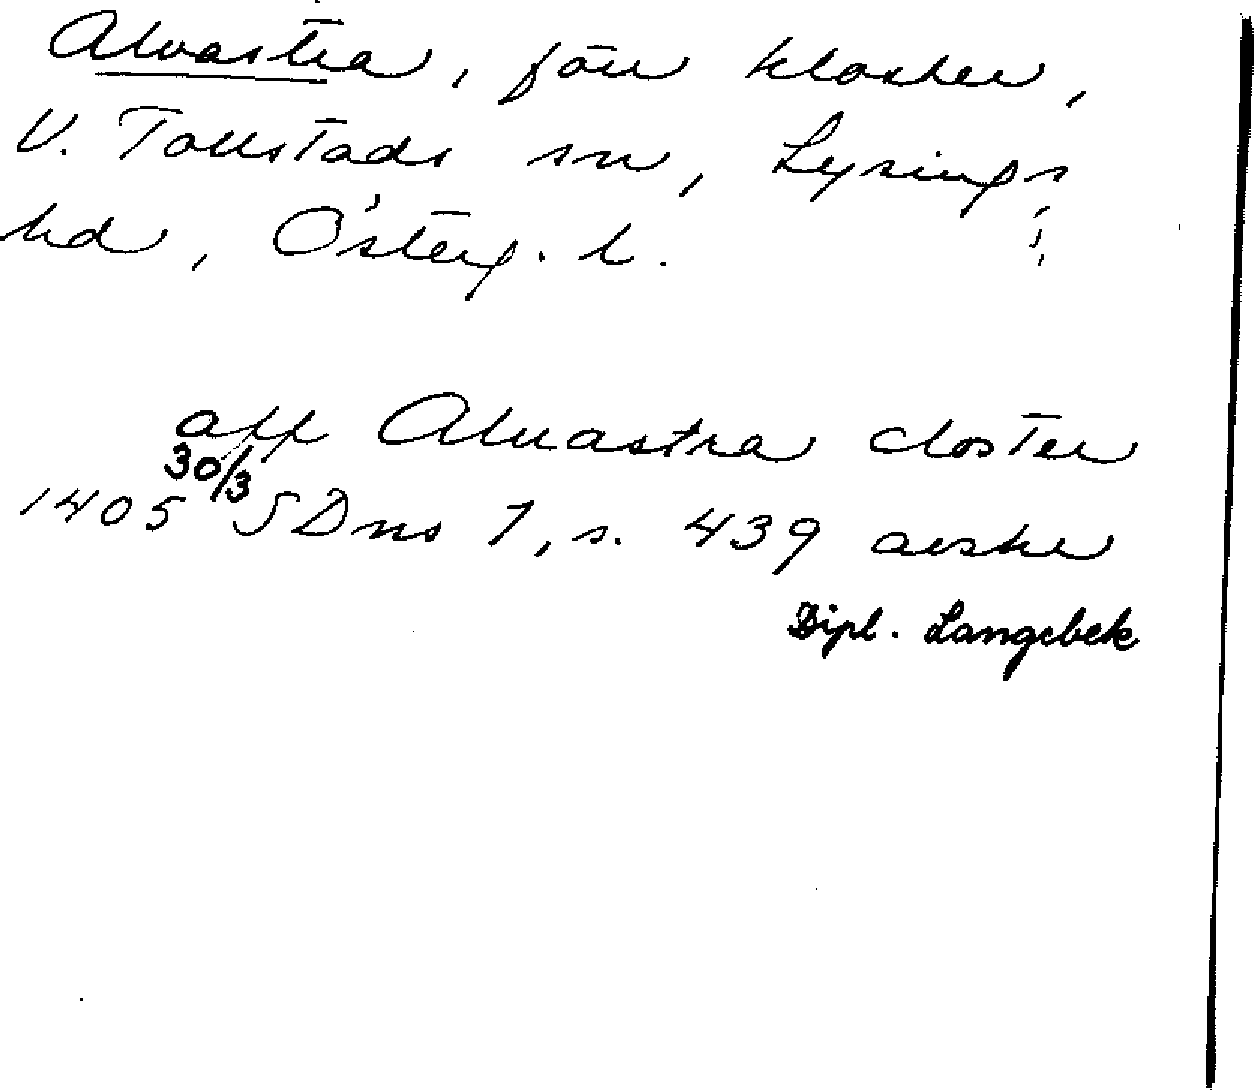 Alvastra, förr kloster,
V. Tollstads sn, Lysings
hd, Österg. l.
aff Aluastra closter
1405 30/3 SDns 1, s. 439 avskr
Dipl. Langebek